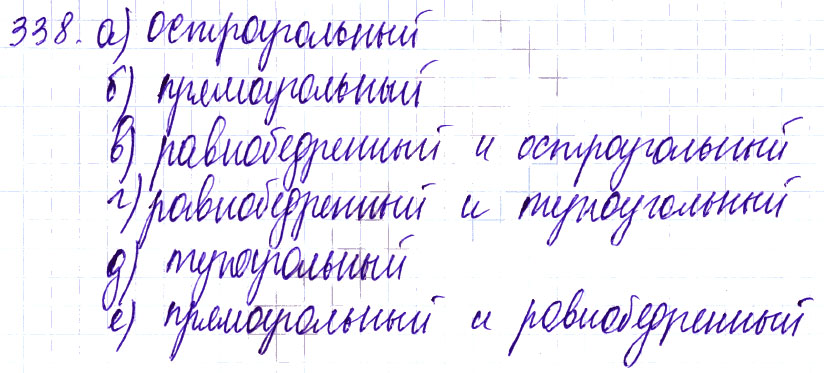 338. а) остроугольный
б) прямоугольный
в) равнобедренный и остроугольный
г) равнобедренный и тупоугольный
д) тупоугольный
е) прямоугольный и равнобедренный